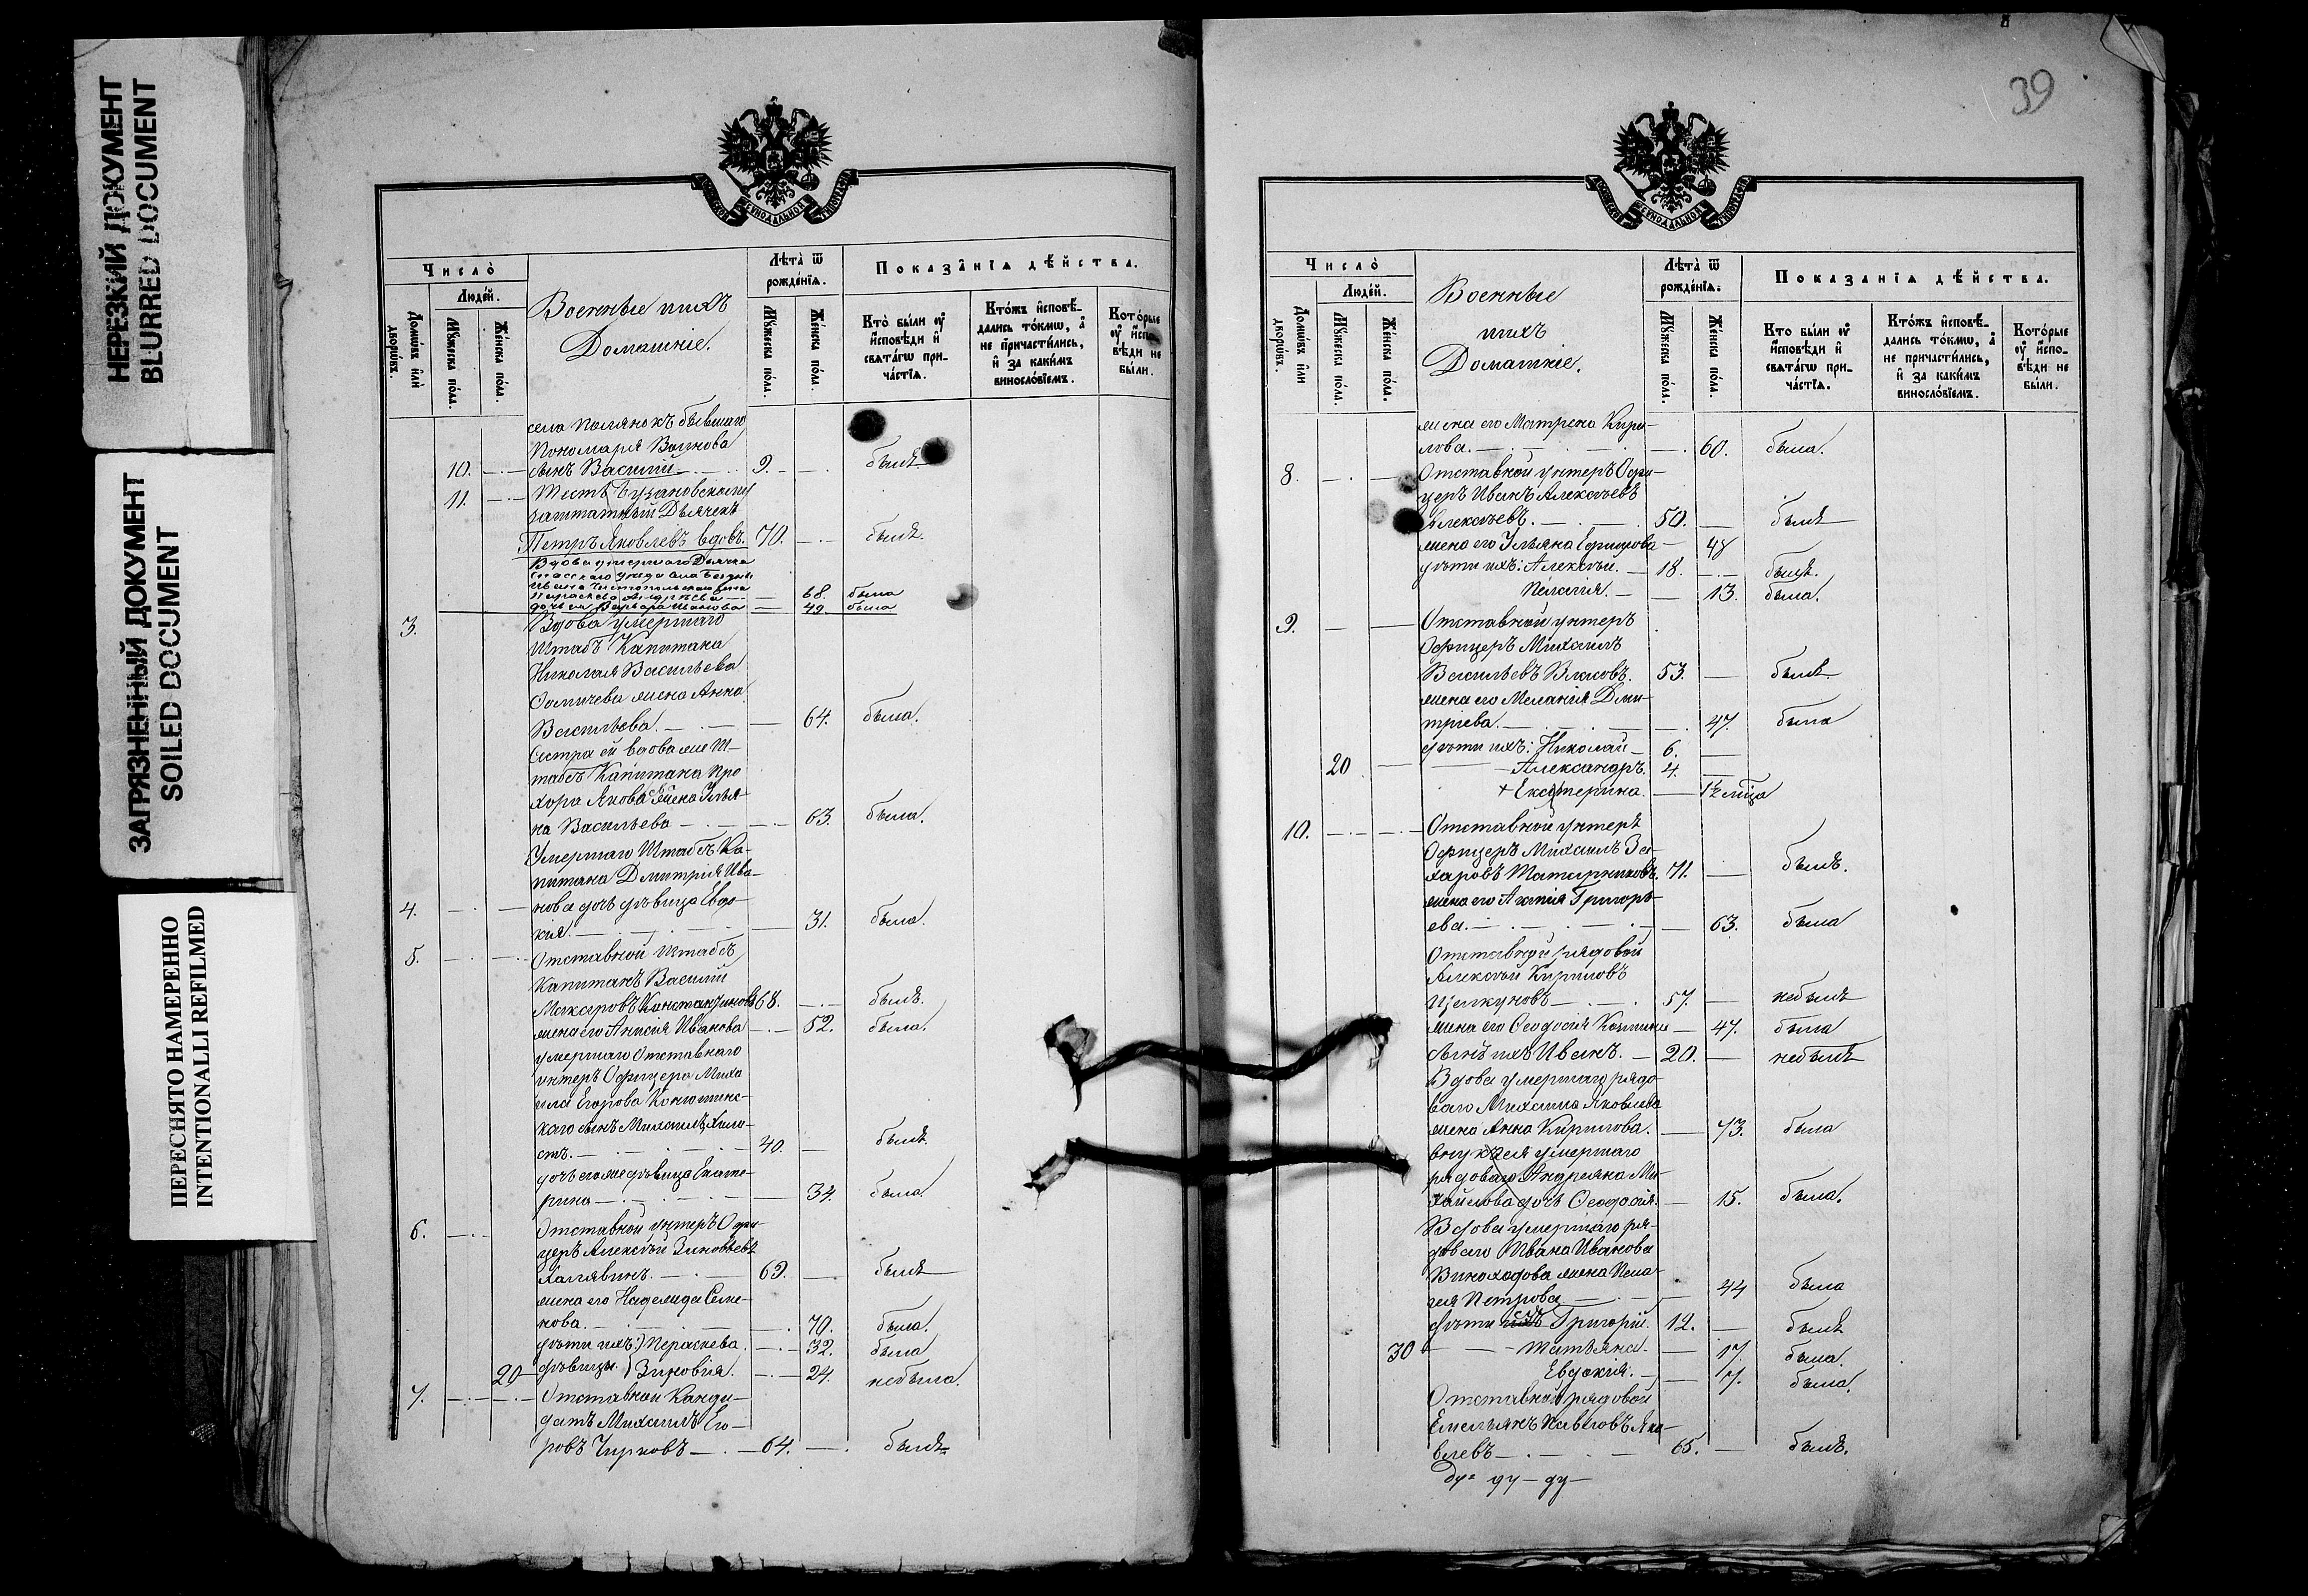 НЕРЕЗКИЙ ДОКУМЕНТ
BLURRED DOCUMENT
ЗАГРЯЗНЕННЫЙ ДОКУМЕНТ
SOILED DOCUMENT
ПЕРЕСНЯТО НАМЕРЕННО
INTENTIONALLI REFILMED
МОСКОВСКОЙ СѴНОДАЛЬНОЙ ТИПОГРАФІИ
Число̀
Люде́й.
Домѡ́въ и҆лѝ дворѡ́въ.
Мꙋ́жеска по́ла.
Же́нска по́ла.
Военные и ихъ
Домашніе.
Лѣта̀ ѿ
рожде́нїѧ.
Мꙋ́жеска по́ла.
Же́нска по́ла.
Показа̑нїѧ дѣ́йства.
Кто̀ бы́ли ᲂу҆
и҆сповѣди и҆
свѧта́гѡ при-
ча́стїѧ.
Кто́жъ и҆сповѣ́-
дались то́кмѡ, а҆
не причасти́лись,
и҆ за каки́мъ
винослóвїемъ.
Кото́рые
ᲂу҆ и҆спо-
вѣди не
бы́ли.
села Полянокъ бывшаго
Пономаря Волкова
10. сынъ Василій 9. былъ
11. Тесть
заштатный Дьячекъ
Петръ Яковлевъ вдовъ. 70. былъ.
Вдова умершаго Дьячка
Параскева Андреева 68. была
дочь ея Варвара Иванова 49. была
3. Вдова умершаго
Штабъ Капитана
Николая Васильева
жена Анна
Васильева. 64. была.
Сестра ей вдова же Ш-
табсъ Капитана Про
хора Якова жена Улья-
на Васильева 63. была.
Умершаго Штабсъ Ка-
питана Дмитрія Ива-
4. нова дочь дѣвица Евдо-
кія. 31. была.
5. Отставной Штабсъ
Капитанъ Василій
Макаровъ Константиновъ 68. былъ.
жена его Анисія Иванова 52. была.
умершаго Отставнаго
унтеръ Офицера Миха
ила Егорова
каго сынъ Михаилъ, холо-
стъ. 40. былъ.
дочь его же дѣвица Екате-
рина 34. была.
6. Отставной унтеръ Офи-
церъ Алексѣй Зиновьевъ
Халявинъ. 69. былъ
жена его Надежда Семе-
нова. 70. была.
дѣти ихъ: Параскева. 32. была
20 дѣвицы. Зиновія. 24. небыла.
7. Отставной Канди-
датъ Михаилъ Его-
ровъ Чирковъ 64. былъ
39
МОСКОВСКОЙ СѴНОДАЛЬНОЙ ТИПОГРАФІИ
Число̀
Люде́й.
Домѡ́въ и҆лѝ дворѡ́въ.
Мꙋ́жеска по́ла.
Же́нска по́ла.
Военные
и ихъ
Домашніе.
Лѣта̀ ѿ
рожде́нїѧ.
Мꙋ́жеска по́ла.
Же́нска по́ла.
Показа̑нїѧ дѣ́йства.
Кто бы́ли ᲂу҆
и҆сповѣди и҆
свѧта́гѡ при-
ча́стїѧ.
Кто́жъ и҆сповѣ́-
дались то́кмѡ, а҆
не причасти́лись,
и҆ за каки́мъ
винослóвїемъ.
Кото́рые
ᲂу҆ и҆спо-
вѣди не
бы́ли.
жена его Матрена Кири-
лова. 60. была.
8. Отставной унтеръ Офи-
церъ Иванъ Алексѣевъ
Алексѣевъ. 50. былъ
жена его Ульяна Ефимова 48
дѣти ихъ: Алексѣй. 18. былъ.
Пелагія. 13. была.
9. Отставной унтеръ
Офицеръ Михаилъ
Васильевъ Власовъ. 53. былъ
жена его Меланія Дми-
тріева. 47. была
дѣти ихъ: Николай 6.
20 Александръ. 4.
+ Екатерина. 1½ мца
10. Отставной унтеръ
Офицеръ Михаилъ За-
харовъ Татарниковъ. 71. былъ.
жена его Агапія Григорь-
ева. 63. была
Отставной рядовой
Алексѣй Кириловъ
Щелкуновъ 57. небылъ
жена его Ѳеодосія Козмина 47. была
сынъ ихъ Иванъ. 20. небылъ
Вдова умершаго рядо-
ваго Михаила Яковлева
жена Анна Кирилова. 73. была
внука ея умершаго
рядоваго Андреяна Ми-
хайлова дочь Ѳеодосія. 15. была.
Вдова умершаго ря-
доваго Ивана Иванова
Виноходова жена Пела-
гея Петрова 44 была
дѣти Григорій. 12. былъ
30 Татьяна. 17. была.
Евдокія. 7. была.
Отставной рядовой
Емельянъ Павловъ Яко-
влевъ 65. былъ.